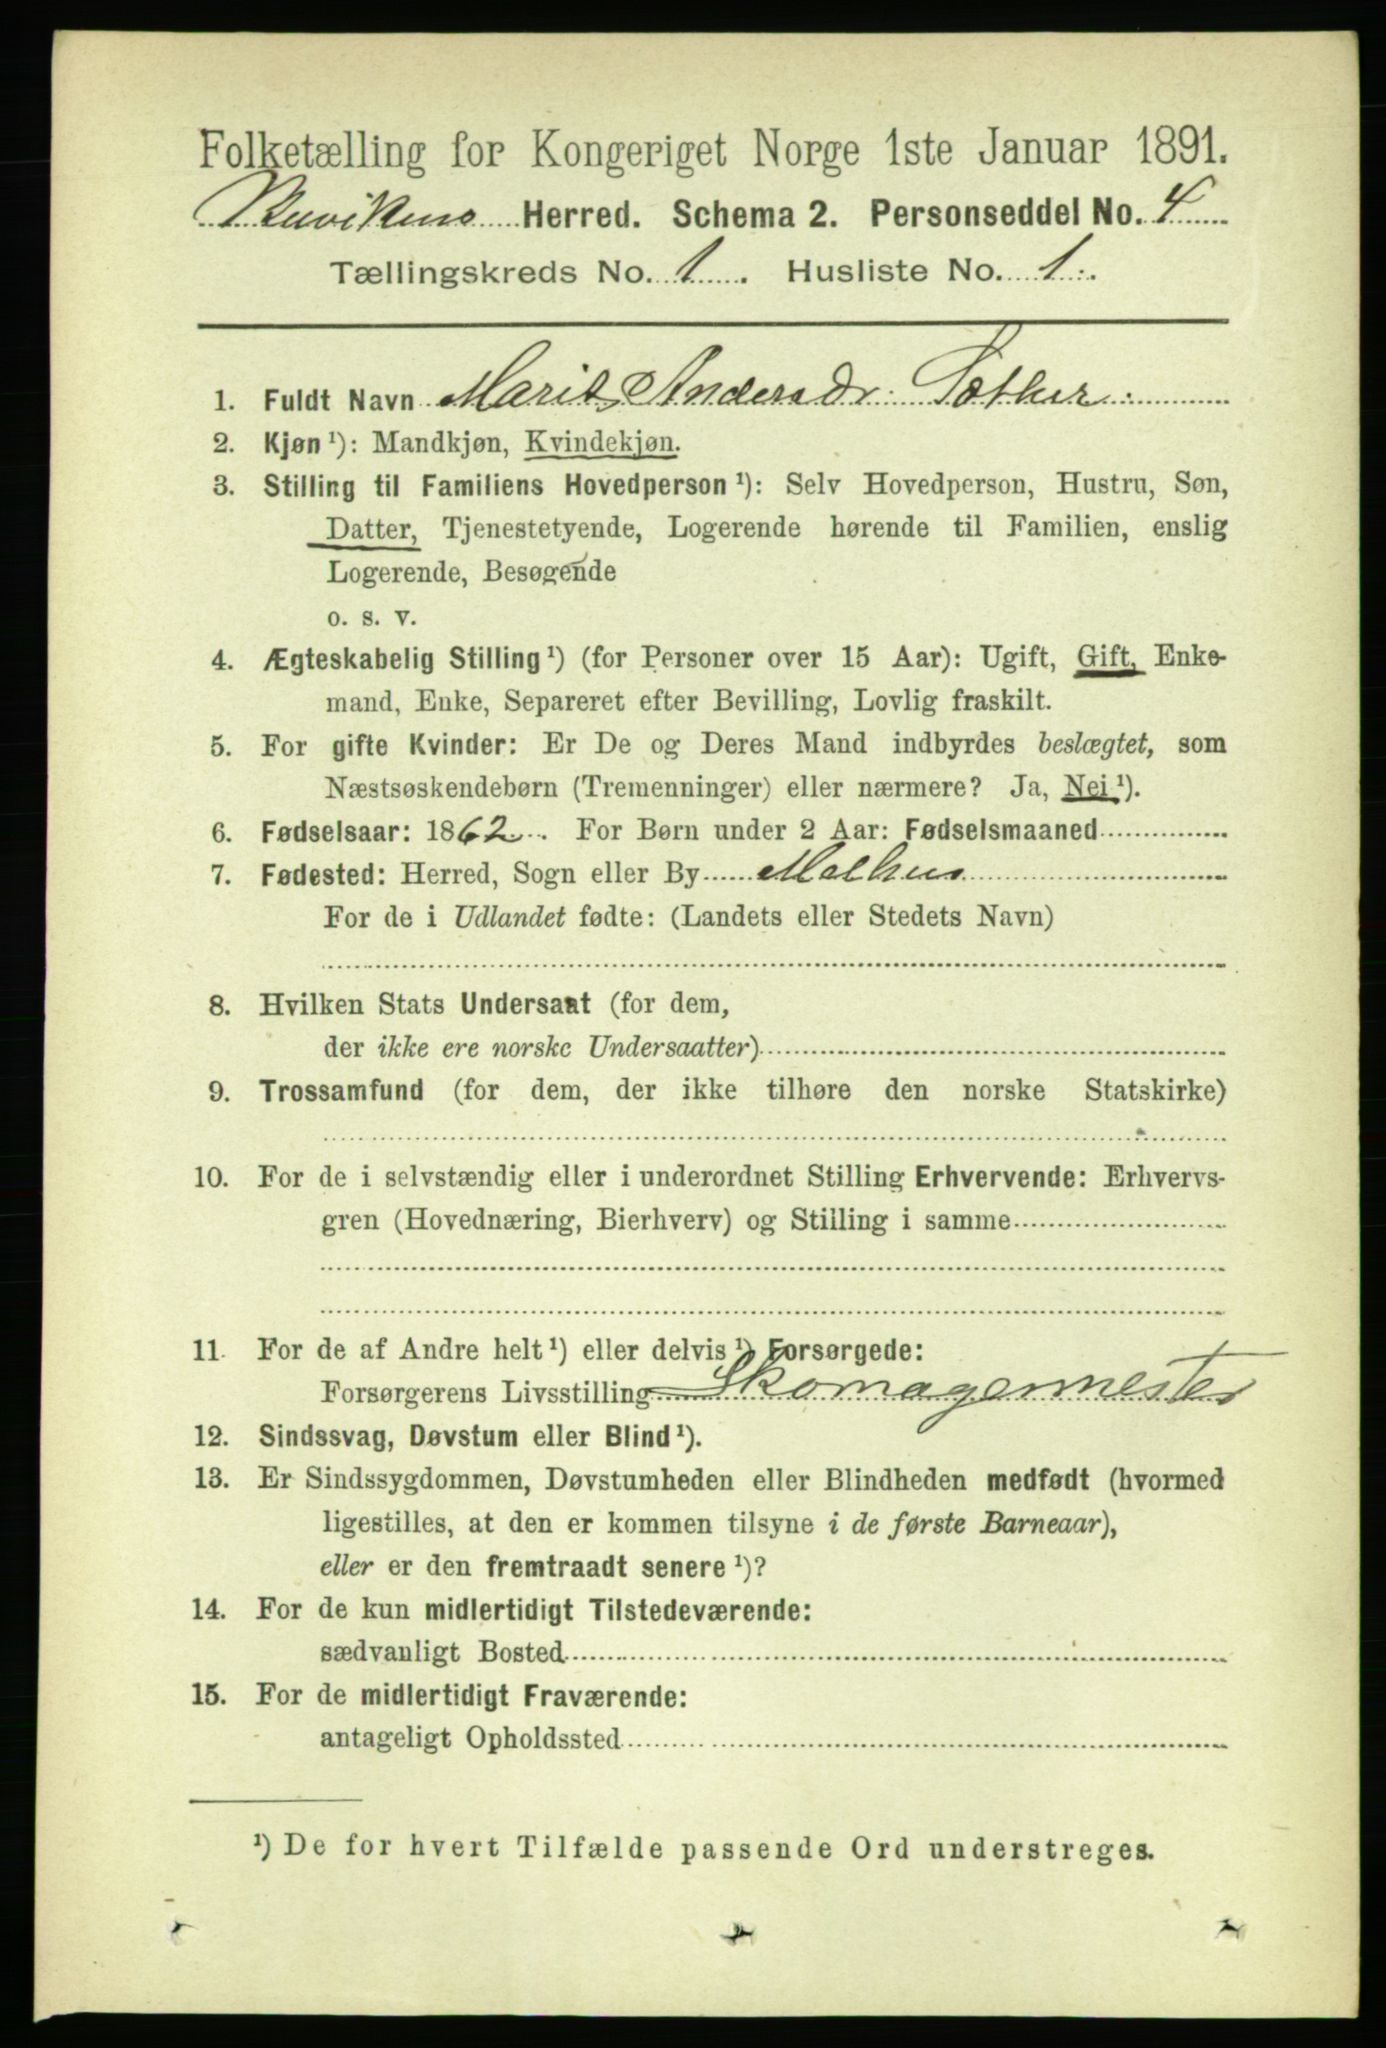 Folketælling for Kongeriget Norge 1ste Januar 1891.
Buvikens Herred. Schema 2. Personseddel No. 4
Tællingskreds No. 1. Husliste No. 1.
1. Fuldt Navn Marit Andersdr.
2. Kjøn ¹): Mandkjøn, Kvindekjøn.
3. Stilling til Familiens Hovedperson ¹): Selv Hovedperson, Hustru, Søn,
Datter, Tjenestetyende, Logerende hørende til Familien, enslig
Logerende, Besøgende
o. s. v.
4. Ægteskabelig Stilling ¹) (for Personer over 15 Aar): Ugift, Gift, Enke-
mand, Enke, Separeret efter Bevilling, Lovlig fraskilt.
5. For gifte Kvinder: Er De og Deres Mand indbyrdes beslægtet, som
Næstsøskendebørn (Tremenninger) eller nærmere? Ja, Nei ¹).
6. Fødselsaar: 1862. For Børn under 2 Aar: Fødselsmaaned
7. Fødested: Herred, Sogn eller By Melhus
For de i Udlandet fødte: (Landets eller Stedets Navn)
8. Hvilken Stats Undersaat (for dem,
der ikke ere norske Undersaatter)
9. Trossamfund (for dem, der ikke tilhøre den norske Statskirke)
10. For de i selvstændig eller i underordnet Stilling Erhvervende: Erhvervs-
gren (Hovednæring, Bierhverv) og Stilling i samme
11. For de af Andre helt ¹) eller delvis ¹) Forsørgede:
Forsørgerens Livsstilling Skomagermester
12. Sindssvag, Døvstum eller Blind ¹).
13. Er Sindssygdommen, Døvstumheden eller Blindheden medfødt (hvormed
ligestilles, at den er kommen tilsyne i de første Barneaar),
eller er den fremtraadt senere ¹)?
14. For de kun midlertidigt Tilstedeværende:
sædvanligt Bosted
15. For de midlertidigt Fraværende:
antageligt Opholdssted
¹) De for hvert Tilfælde passende Ord understreges.